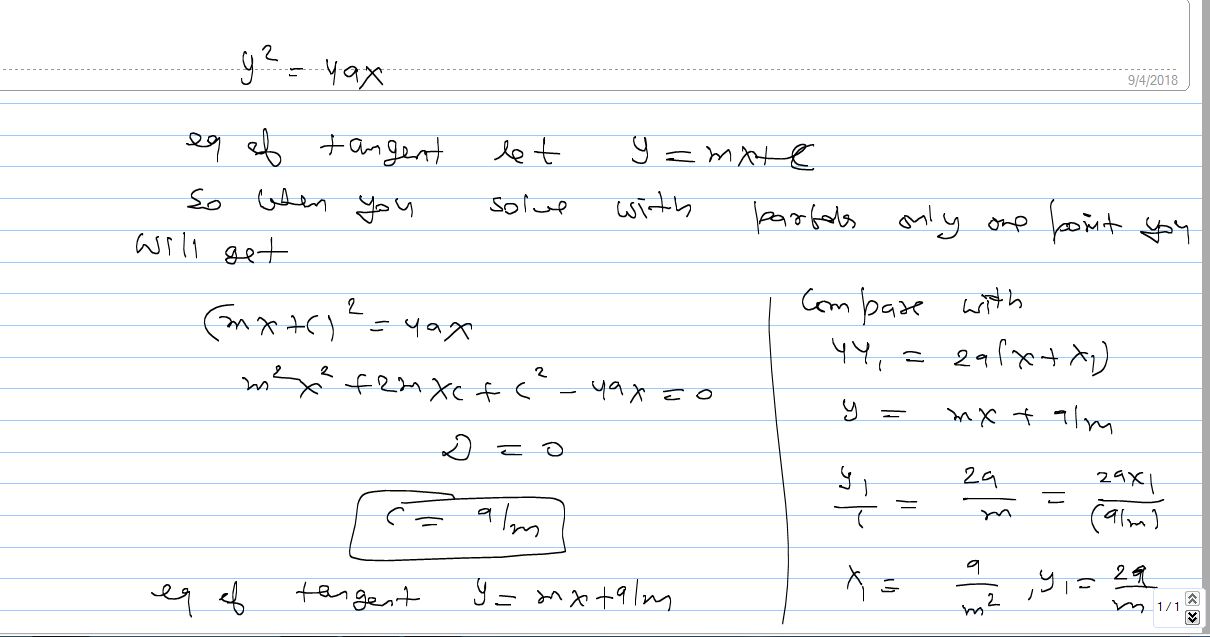 y² = 4ax
9/4/2018
eq of tangent let y = mx+c
So when you solve with parbola only one point you
will get
(mx+c)² = 4ax
m²x² + 2mxc + c² - 4ax = 0
D = 0
c = a/m
eq of tangent y = mx+a/m
Compare with
yy₁ = 2a(x+x₁)
y = mx + a/m
y₁/1 = 2a/m = 2ax₁/(a/m)
x₁ = a/m², y₁ = 2a/m
1/1